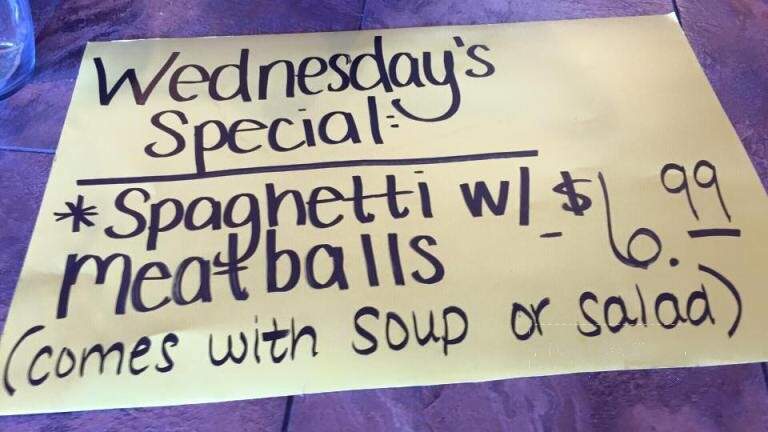 Wednesday's
Special:
*Spaghetti w/ $6.99
meatballs
(comes with soup or salad)